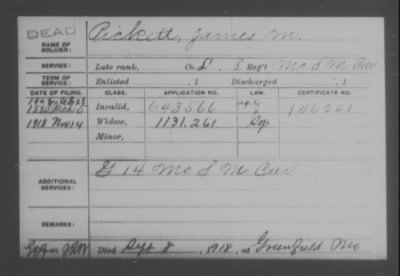 DEAD
NAME OF SOLDIER: Pickett, James M.
SERVICE: Late rank, Co. L. 8 Reg't Mo S M Cav
TERM OF SERVICE: Enlisted , 1 Discharged , 1
DATE OF FILING. CLASS. APPLICATION NO. LAW. CERTIFICATE NO.
Invalid, 643566 446241
1918 Nov 14 Widow, 1131.261
Minor,
ADDITIONAL SERVICES: G 14 Mo S M Cav
REMARKS:
Died Sept 8, 1918, at Greenfield Mo